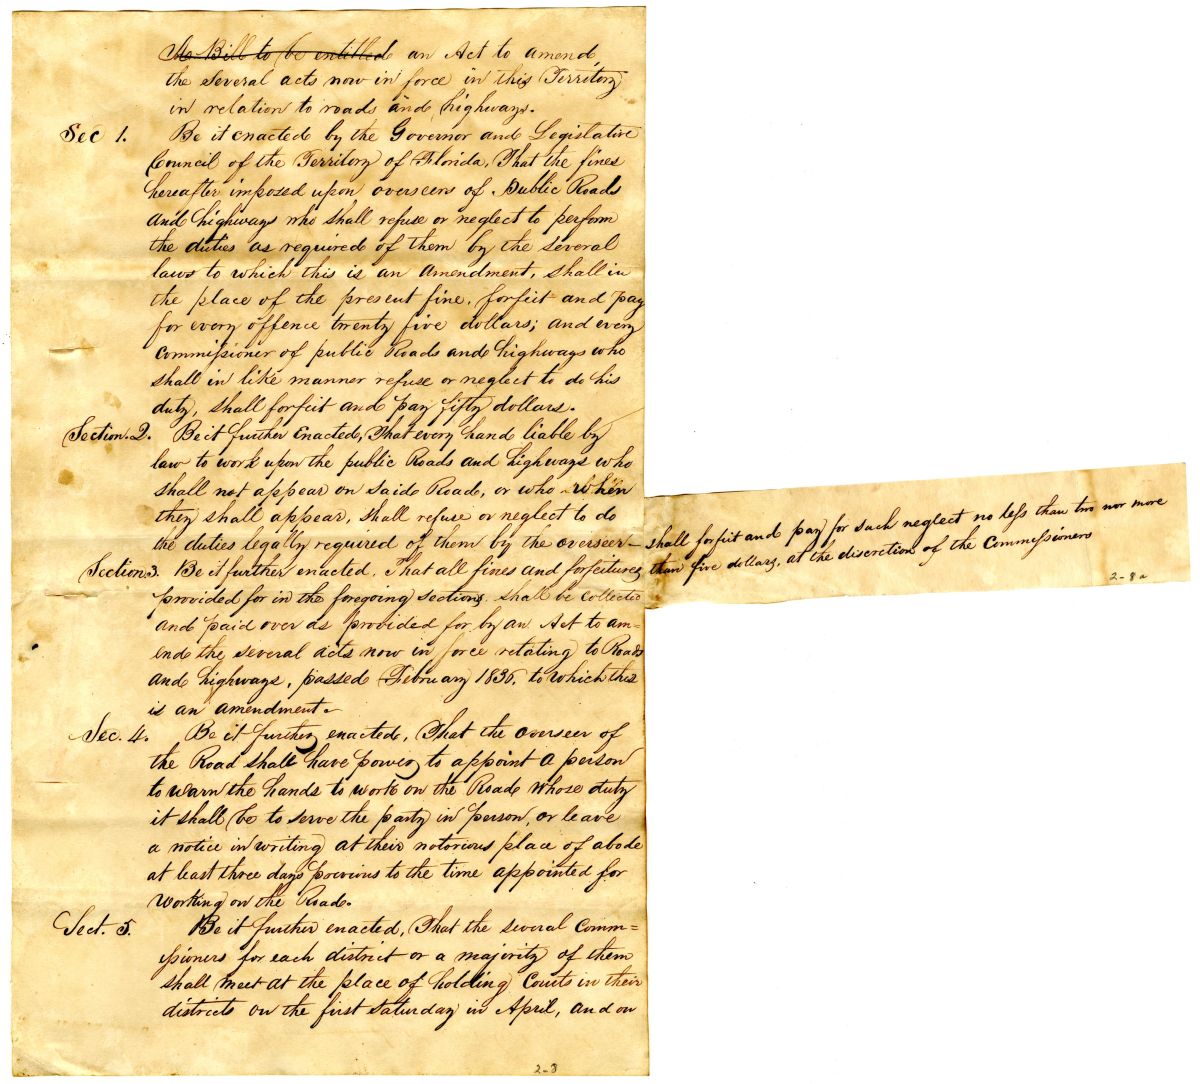 A Bill to be entitled an Act to amend,
the several acts now in force in this Territory
in relation to roads and highways.
Sec 1. Be it enacted by the Governor and Legislative
Council of the Territory of Florida, That the fines
hereafter imposed upon overseers of Public Roads
and highways who shall refuse or neglect to perform
the duties as required of them by the several
laws to which this is an amendment, shall in
the place of the present fine, forfeit and pay
for every offence twenty five dollars; and every
commissioner of public Roads and highways who
shall in like manner refuse or neglect to do his
duty, shall forfeit and pay fifty dollars.
Section. 2. Be it further Enacted, That every hand liable by
law to work upon the public Roads and highways who
shall not appear on said Road, or who when
they shall appear, shall refuse or neglect to do
the duties legally required of them by the overseer –
shall forfeit and pay for such neglect no less than two nor more
than five dollars, at the discretion of the Commissioners
2-8a
Section 3. Be it further enacted, That all fines and forfeitures
provided for in the foregoing sections shall be collected
and paid over as provided for by an Act to am=
end the several acts now in force relating to Roads
and highways, passed February 1836, to which this
is an amendment.
Sec. 4. Be it further enacted, That the overseer of
the Road shall have power to appoint a person
to warn the hands to work on the Road whose duty
it shall be to serve the party in person, or leave
a notice in writing at their notorious place of abode
at least three days previous to the time appointed for
working on the Road.
Sect. 5. Be it further enacted, That the several Comm=
issioners for each district or a majority of them
shall meet at the place of holding Courts in their
districts on the first Saturday in April, and on
2-8